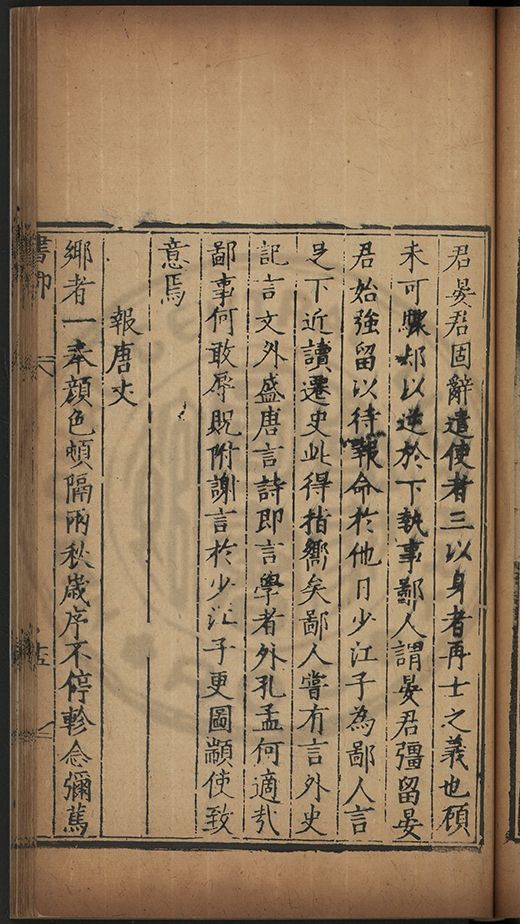 君晏君固辭遣使者三以身者再士之義也碩
未可驟却以逆於下執事鄙人謂晏君彊留晏
君始強留以待報命於他日少江子為鄙人言
足下近讀遷史此得指嚮矣鄙人嘗有言外史
記言文外盛唐言詩即言學者外孔孟何適哉
鄙事何敢辱貺附謝言於少江子更圖顓使致
意焉
報唐丈
鄉者一奉顔色頓隔兩秋歲序不停軫念彌篤
書